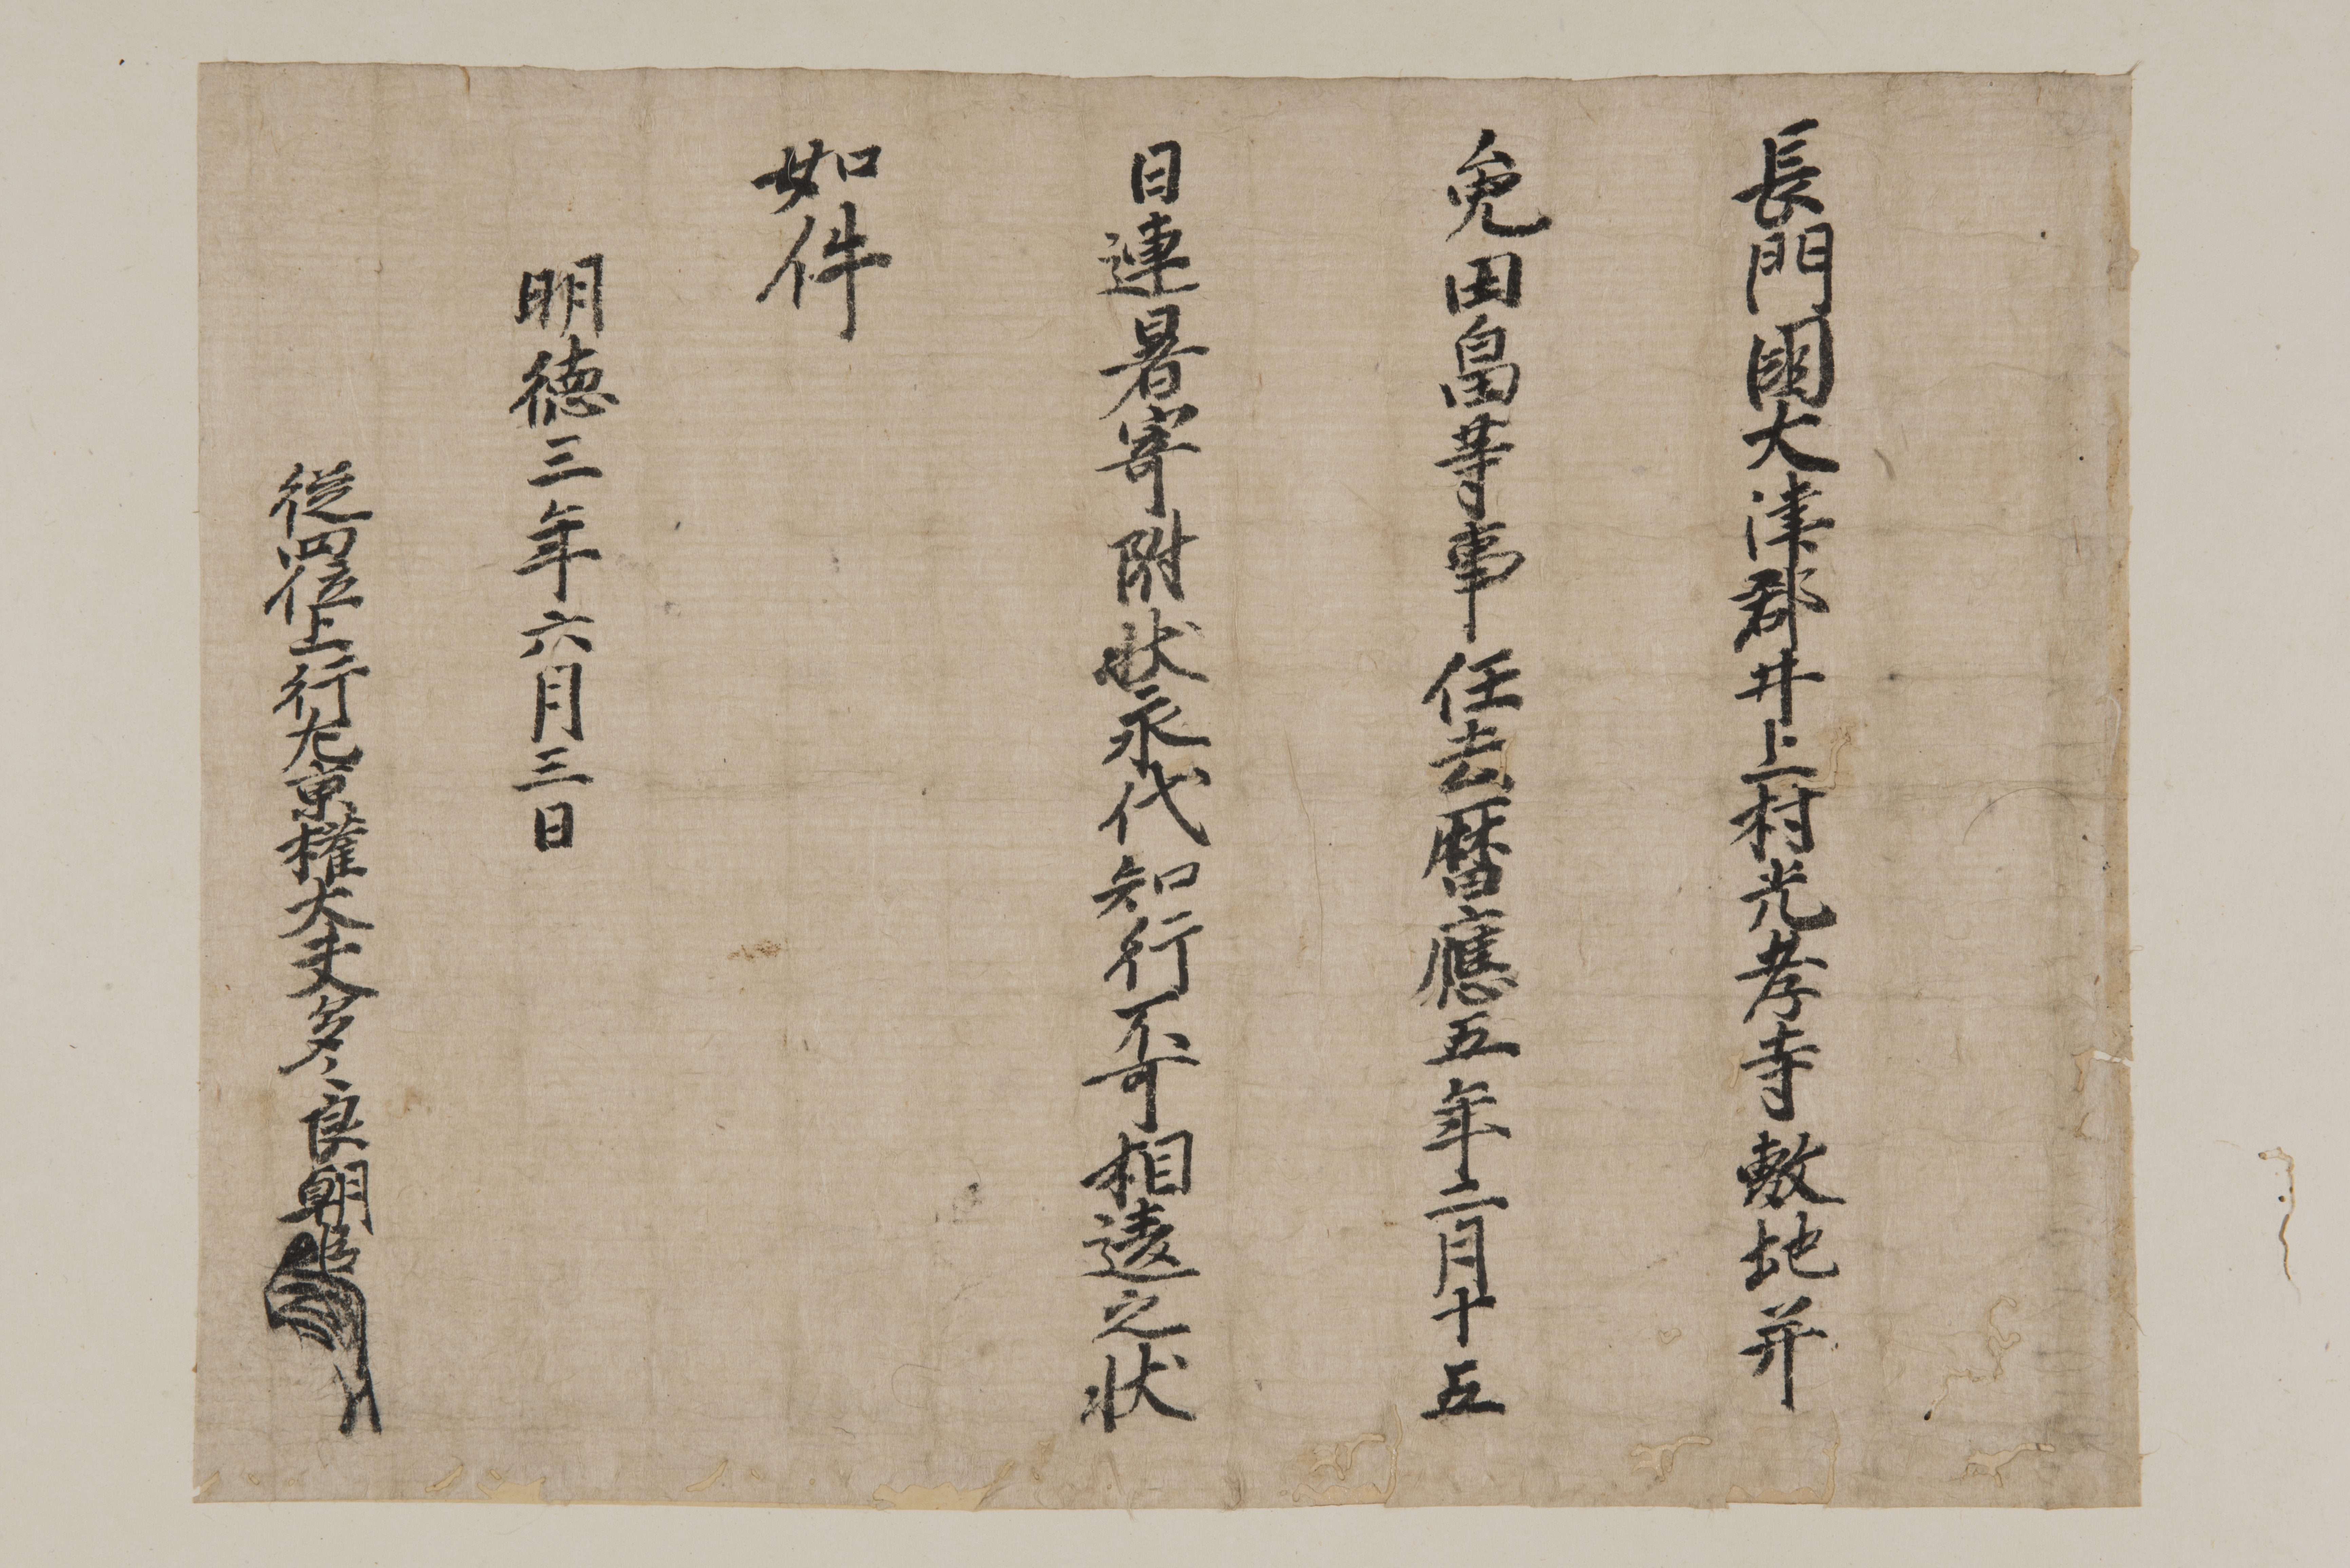 長門國大津郡井上村光孝寺敷地并
免田畠等事任去暦應五年二月十五
日連署寄附状永代知行不可相違之状
如件
明徳三年六月三日
従四位上行左京權大夫多々良朝臣